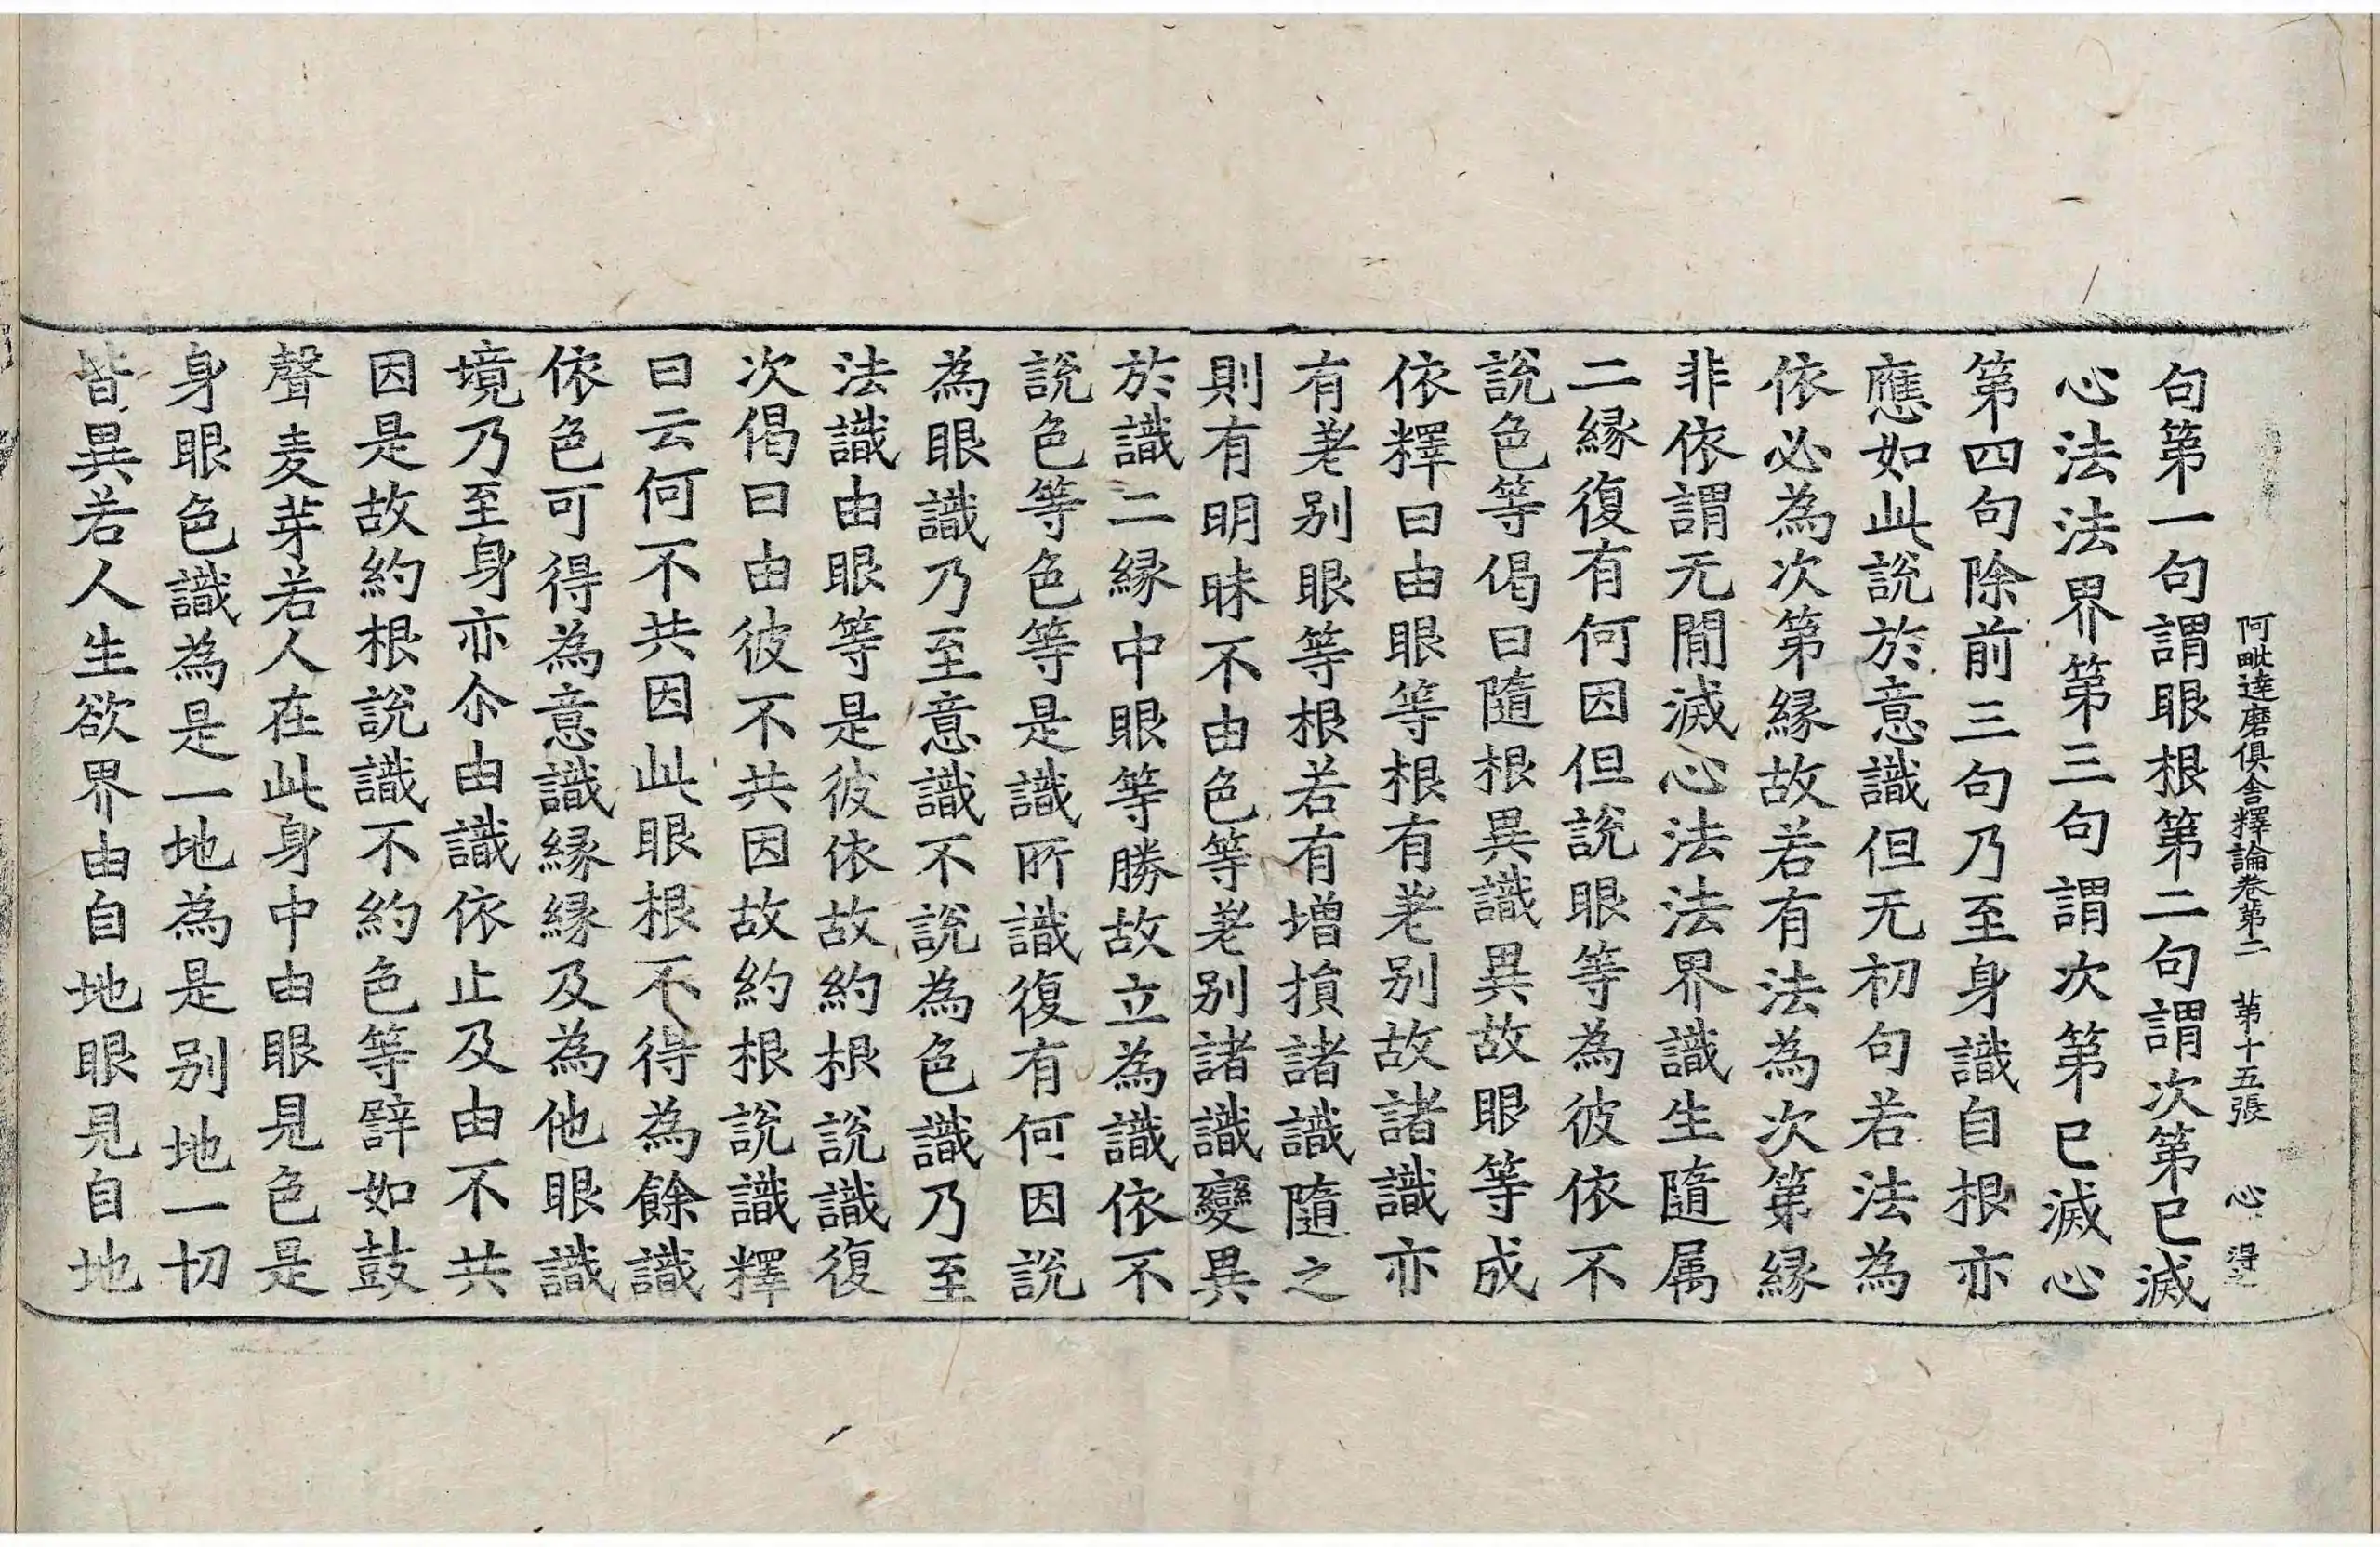 阿毗達磨俱舍釋論卷第二 第十五張 心 得之
句第一句謂眼根第二句謂次第已滅
心法法界第三句謂次第已滅心
第四句除前三句乃至身識自根亦
應如此說於意識但无初句若法為
依必為次第縁故若有法為次第縁
非依謂无間滅心法法界識生隨属
二縁復有何因但說眼等為彼依不
說色等偈曰隨根異識異故眼等成
依釋曰由眼等根有差别故諸識亦
有差别眼等根若有增損諸識隨之
則有明昧不由色等差别諸識變異
於識二縁中眼等勝故立為識依不
說色等色等是識所識復有何因說
為眼識乃至意識不說為色識乃至
法識由眼等是彼依故約根說識復
次偈曰由彼不共因故約根說識釋
曰云何不共因此眼根不得為餘識
依色可得為意識縁縁及為他眼識
境乃至身亦尒由識依止及由不共
因是故約根說識不約色等譬如鼓
聲麦芽若人在此身中由眼見色是
身眼色識為是一地為是别地一切
皆異若人生欲界由自地眼見自地